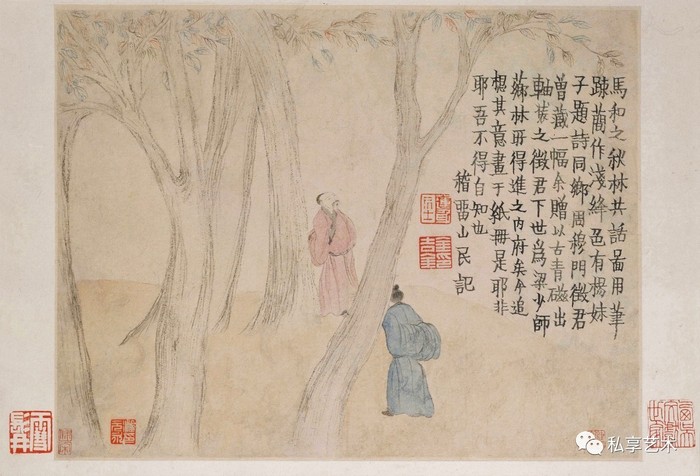 馬和之秋林共話啚用筆
踈蕳作淺絳色有楊妹
子題詩同鄉周穆門徵君
曾藏一幅余贈以古青磁出
軸裝之徵君下世爲梁少師
薌林冊得進之內府矣今追
想其意畫于紙冊是耶非
耶吾不得自知也
稽畱山民記
私享艺术